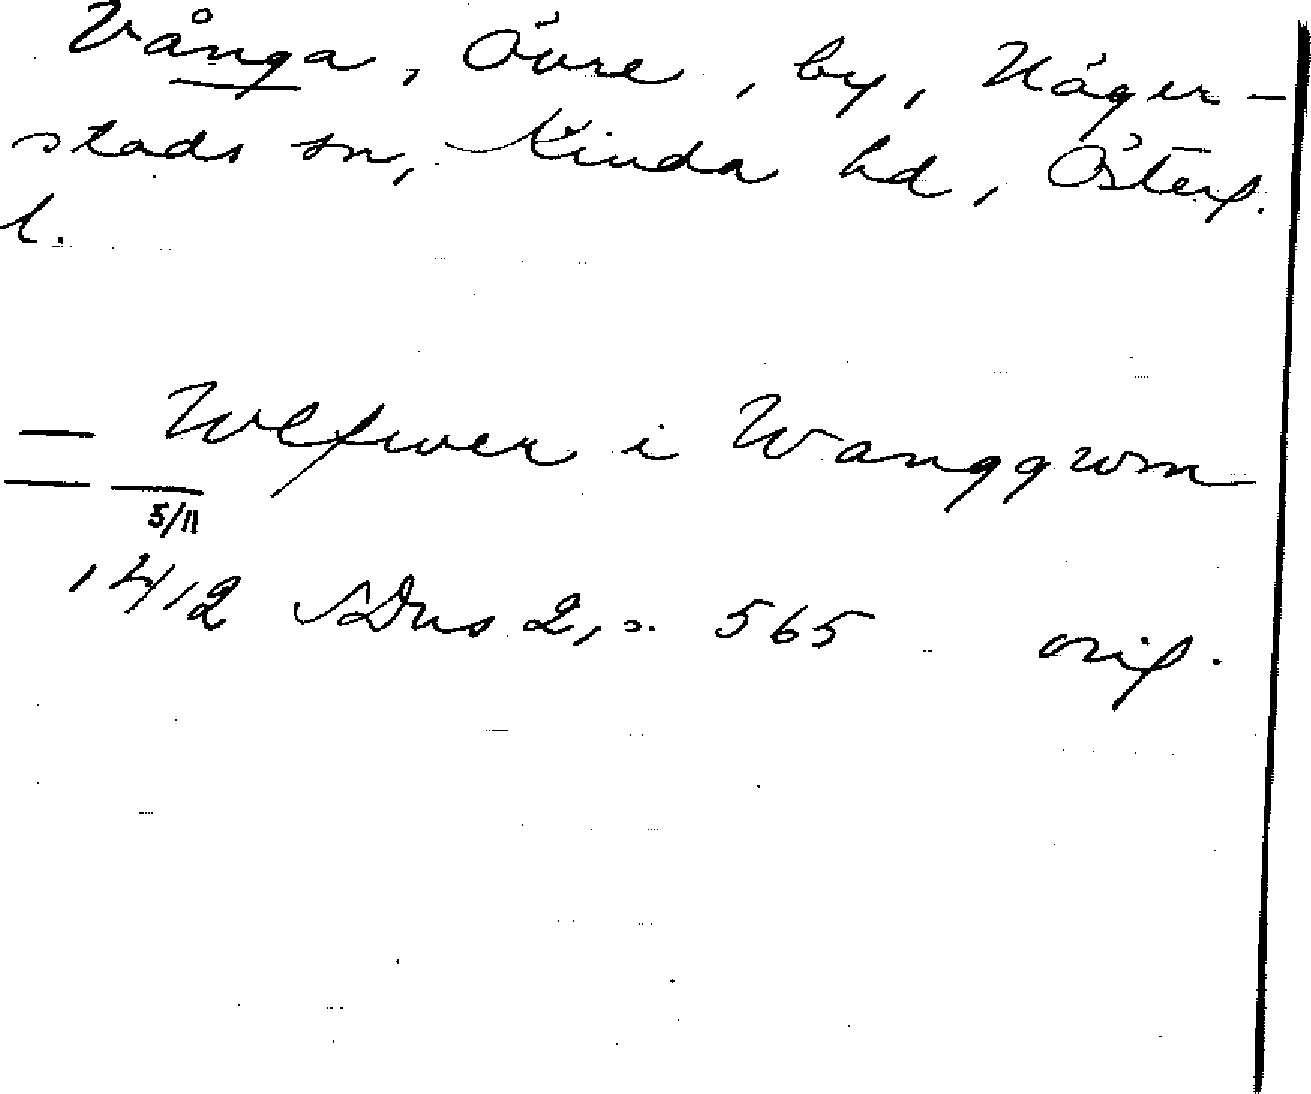 Vånga, Övre, by, Häger-
stads sn, Kinda hd, Österg.
l.
— Wlfwer i Wanggwm
5/11
1412 SDns 2, s. 565 orig.